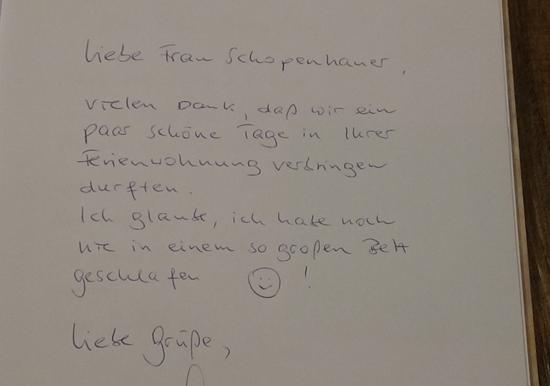 Liebe Frau Schopenhauer,
vielen Dank, daß wir ein
paar schöne Tage in Ihrer
Ferienwohnung verbringen
durften.
Ich glaube, ich habe noch
nie in einem so großen Bett
geschlafen ☺ !
Liebe Grüße,